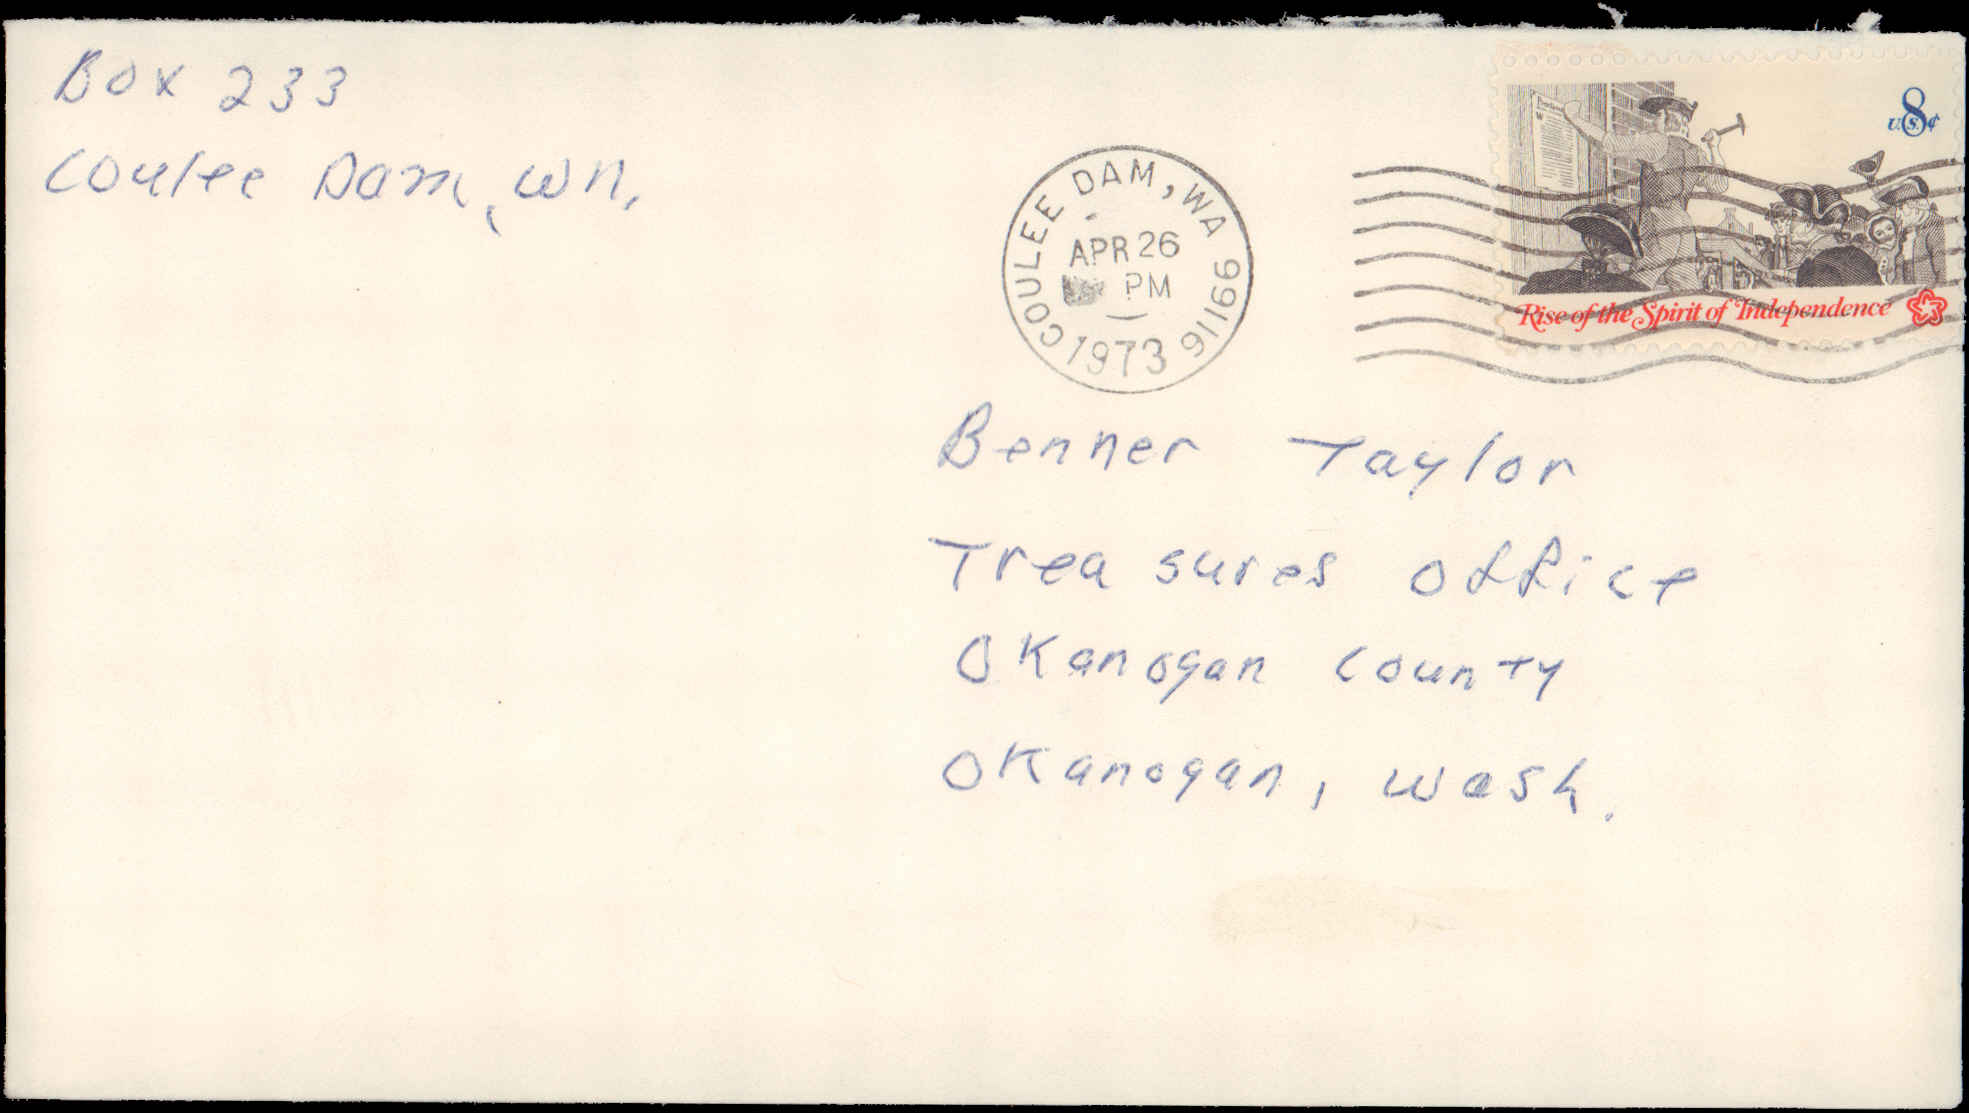 Box 233
Coulee Dam, Wn.
8¢
U.S.
COULEE DAM, WA 99116
APR 26
PM
1973
Rise of the Spirit of Independence
Benner Taylor
Treasures office
Okanogan County
Okanogan, Wash.